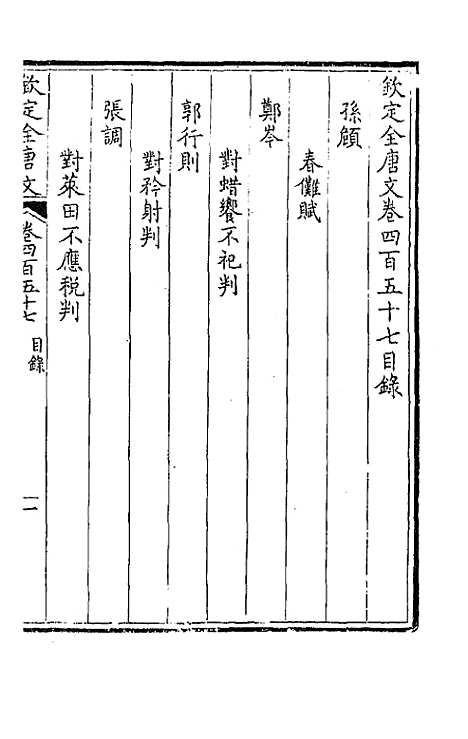 欽定全唐文卷四百五十七目錄
孫頠
春儺賦
鄭岑
對蜡饗不祀判
郭行則
對矜射判
張調
對萊田不應稅判
欽定全唐文
卷四百五十七
目錄
一